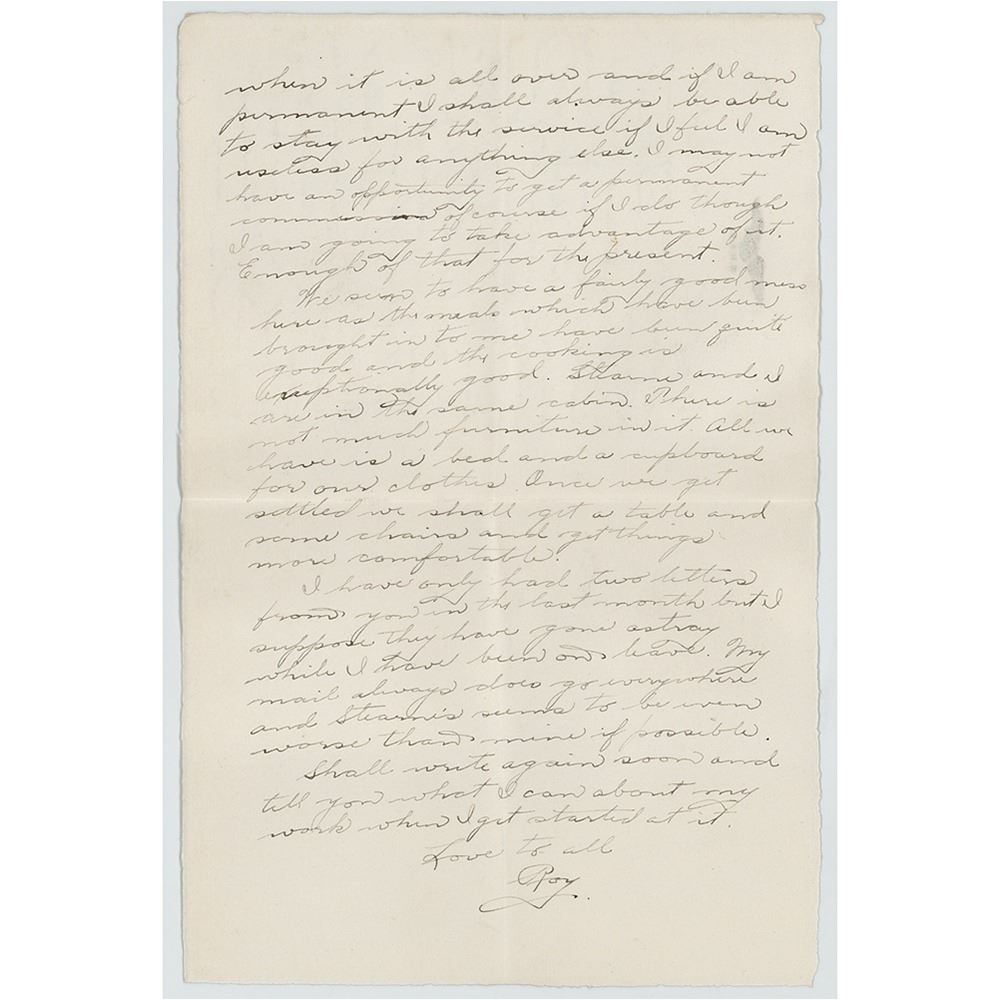 when it is all over and if I am
permanent I shall always be able
to stay with the service if I feel I am
useless for anything else. I may not
have an opportunity to get a permanent
commission of course if I do though
I am going to take advantage of it.
Enough of that for the present.
We seem to have a fairly good mess
here as the meals which have been
brought in to me have been quite
good and the cooking is
exceptionally good. Stearne and I
are in the same cabin. There is
not much furniture in it. All we
have is a bed and a cupboard
for our clothes. Once we get
settled we shall get a table and
some chairs and get things
more comfortable.
I have only had two letters
from you in the last month but I
suppose they have gone astray
while I have been on leave. My
mail always does go everywhere
and Stearne's seems to be even
worse than mine if possible.
Shall write again soon and
tell you what I can about my
work when I get started at it.
Love to all
Roy.